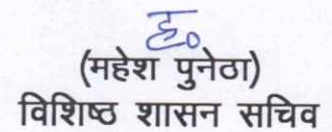 ह०
(महेश पुनेठा)
विशिष्ठ शासन सचिव